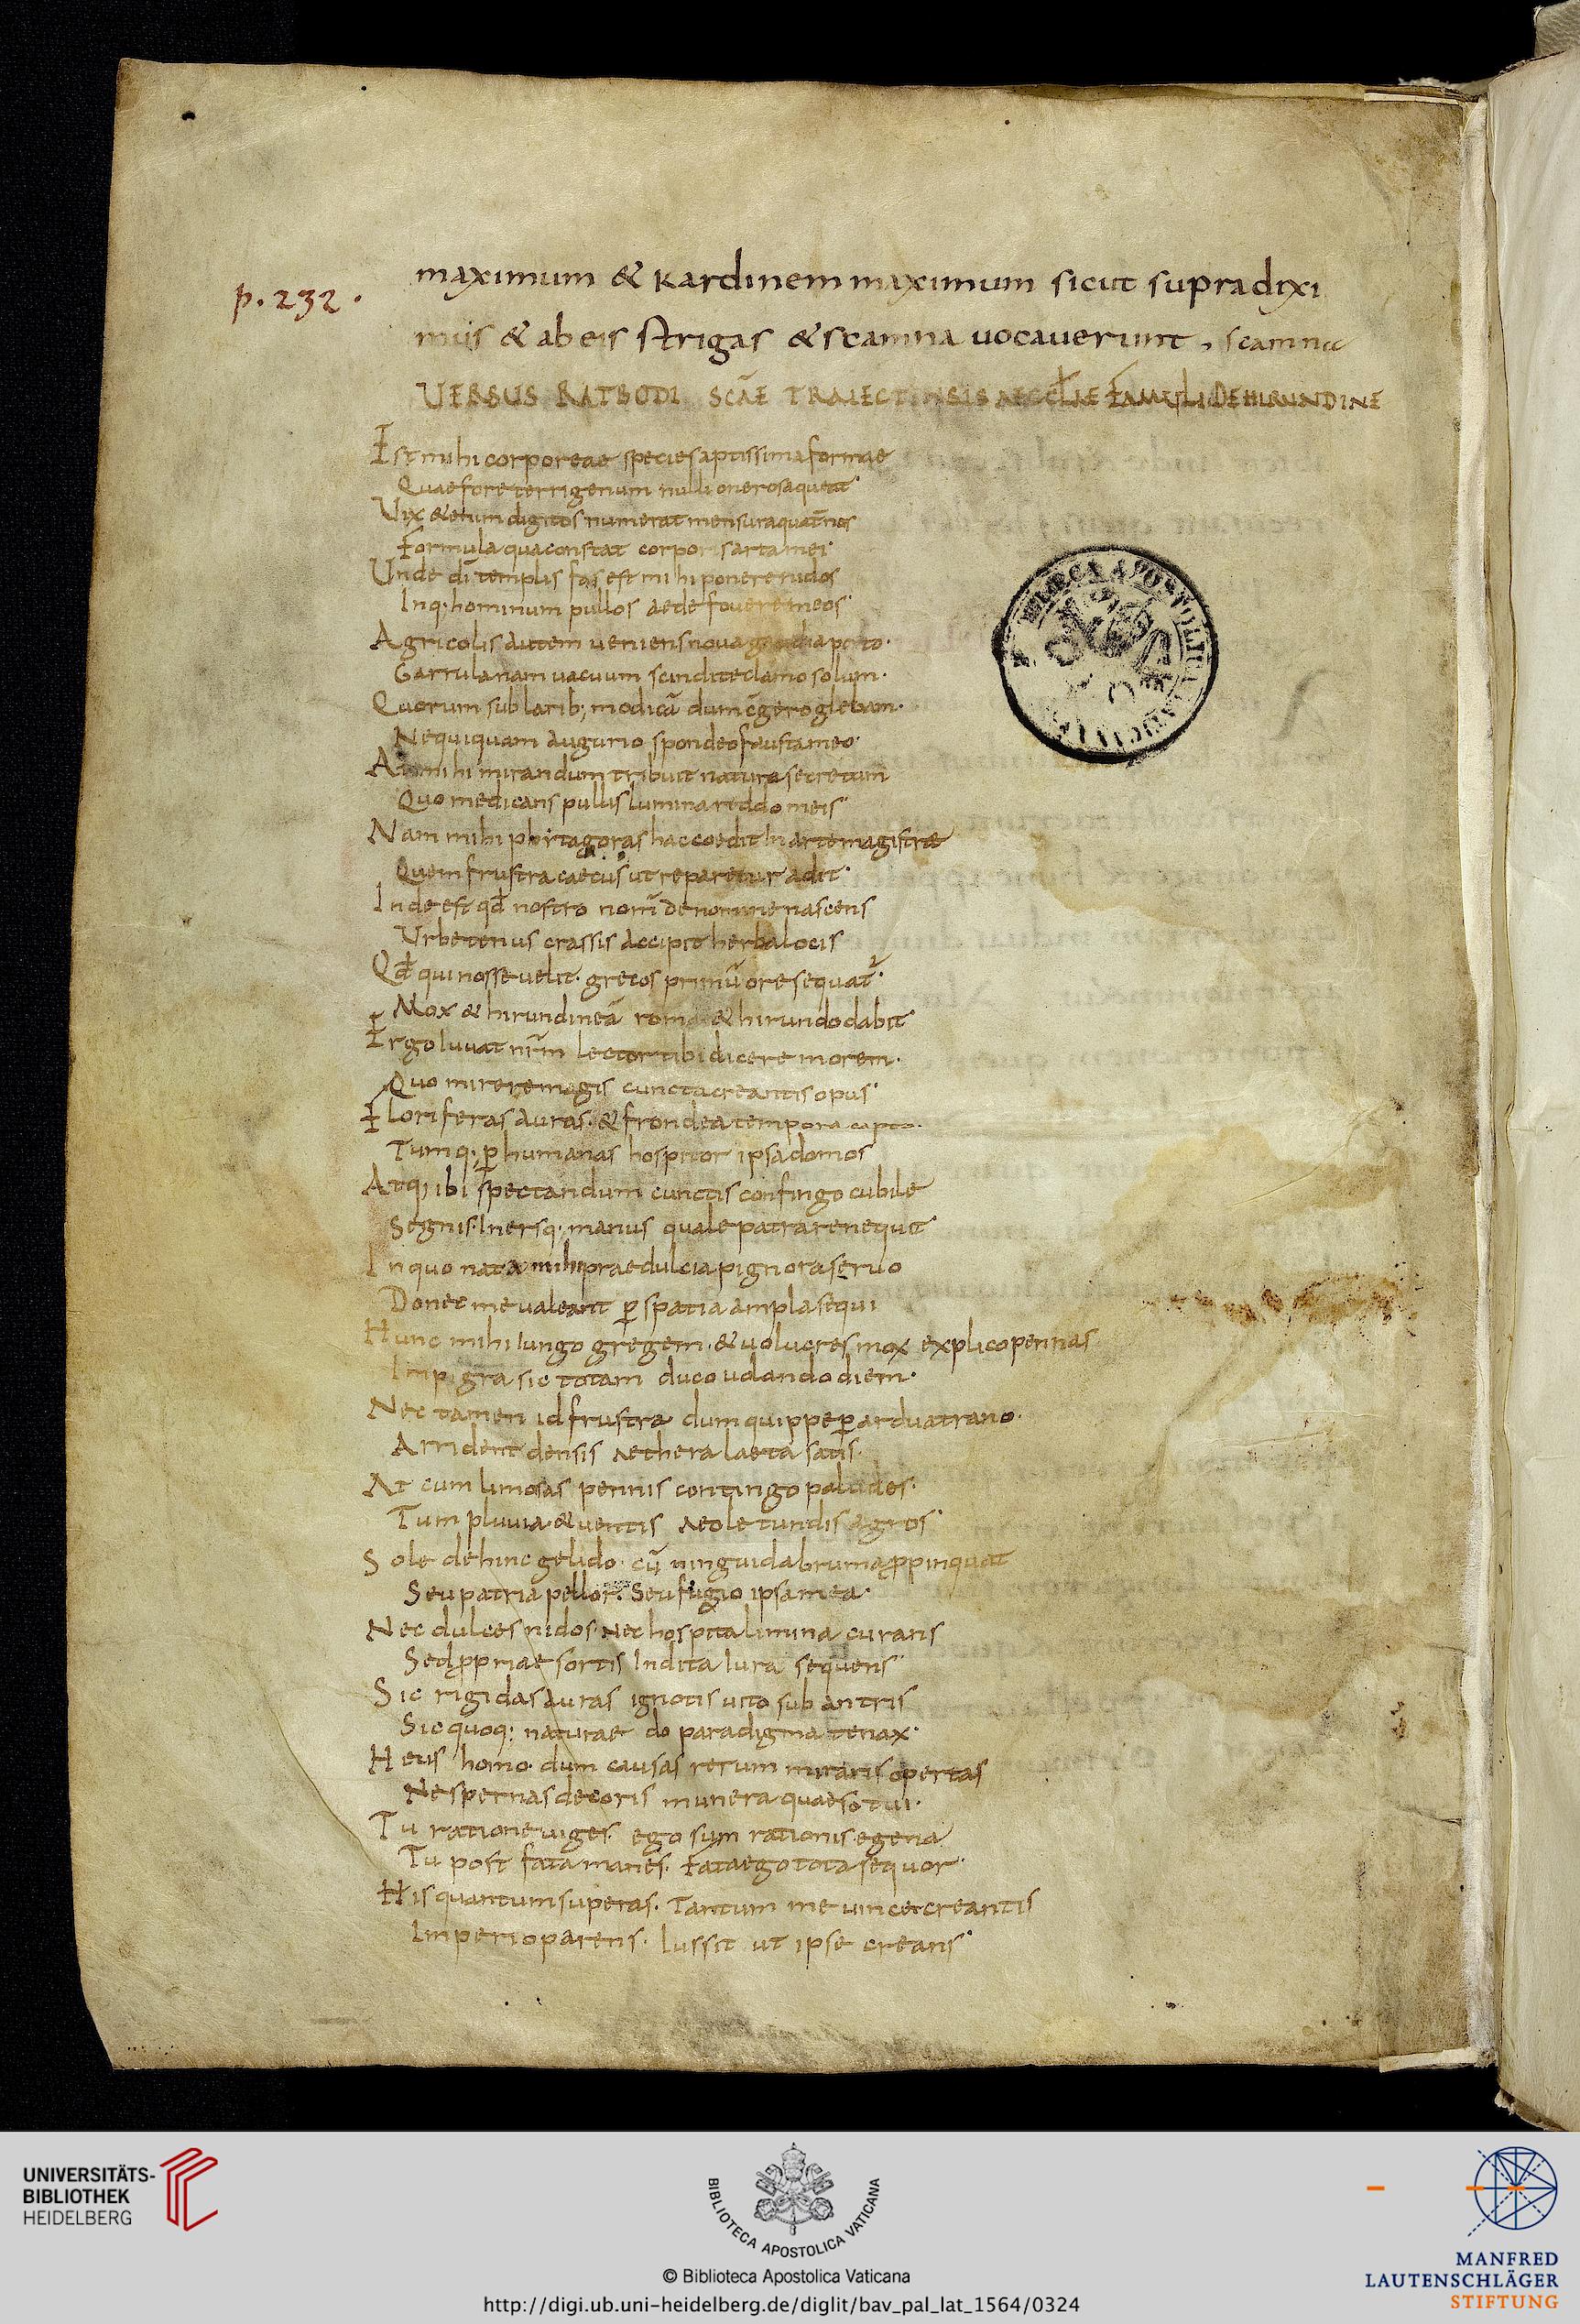 p. 232.
maximum & kardinem maximum sicut supra dixi
mus & ab eis strigas & scamna uocauerunt, scamna
VERSUS RATBODI SCĀE TRAIECTINSIS AECCLIAE FAMULI DE HIRUNDINE
Est mihi corporeae species aptissima formae
Quae fore terrigenum nulli onerosa queat.
Vix & enim digitos numerat mensura quat̄nos
Formula qua constat corporis arta mei.
Unde dī templis fas est mihi ponere nidos
Inq; hominum pullos aede fovere meos.
Agricolis autem ueniens nova gaudia porto.
Garrula nam vacuum scindite clamo solum.
Quorum sub larib; modicā dum c̄gero glebam.
Nequiquam augurio spondeo fausta meo.
At mihi mirandum tribuit natura secretum
Quo medicans pullis lumina reddo meis.
Nam mihi phitagoras hac coedit in arte magistrae
Quem frustra caecus ut reparetur adit.
Inde est qđ nostro nom̄ de nomine nascens
Urbe tenus crassis accipit herba locis
Qđ qui nosse uelit. grecos primū ore sequat̄.
Mox & hirundineā roma & hirundo dabit
Ergo iuvat nr̄m lector tibi dicere morem.
Quo mirere magis cuncta creantis opus.
Floriferas auras. & frondea tempora capto.
Tumq; p humanas hospitor ipsa domos
Atq; ibi spectandum cunctis confingo cubile
Segnis. Inersq; manus quale patrare nequit
In quo nata mihi praedulcia pignora seruo
Donec me valeant p spatia ampla sequi
Hunc mihi iungo gregem. & uolucres mox explico pennas
Impigra sic totam duco volando diem.
Nec tamen id frustra dum quippe p ardua trano.
Arrident densis aethera laeta satis.
At cum limosas pennis contingo paludes.
Tum pluvia & ventis aeole tundis agros.
Sole dehinc gelido. cū ninguida bruma ppinquat
Seu patria pellor. Seu fugio ipsa mea.
Nec dulces nidos. Nec hospita limina curans
Sed ppriae sortis Indita Iura sequens
Sic rigidas auras ignotis uito sub antris
Sic quoq; naturae do paradigma tenax.
Heus homo. dum causas rerum miraris opertas
Ne spernas decoris munera quaeso tui.
Tu ratione uiges. ego sum rationis egena
Tu post fata manes. Fata ego tota sequor.
His quantum superas. Tantum me uince creantis
Imperio parens. Iussit ut ipse creans.
UNIVERSITÄTS-
BIBLIOTHEK
HEIDELBERG
BIBLIOTECA APOSTOLICA VATICANA
© Biblioteca Apostolica Vaticana
http://digi.ub.uni-heidelberg.de/diglit/bav_pal_lat_1564/0324
MANFRED
LAUTENSCHLÄGER
STIFTUNG